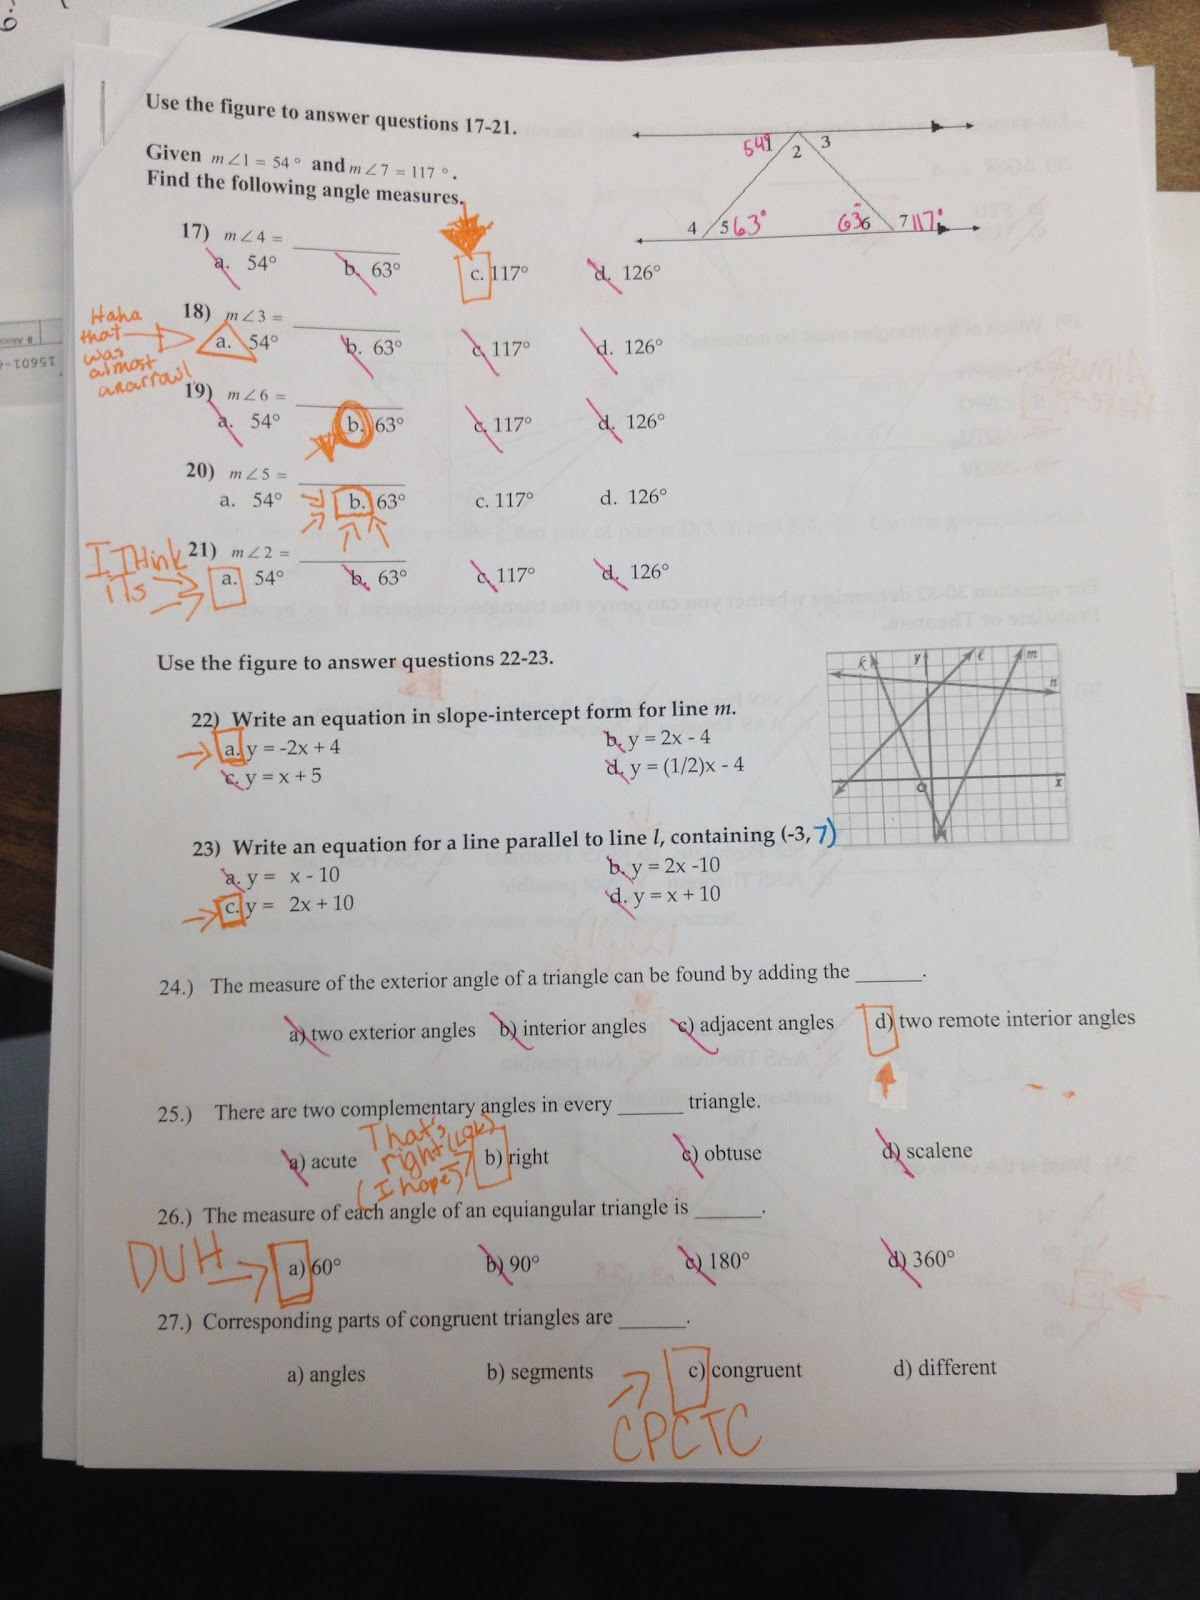 Use the figure to answer questions 17-21.
Given m∠1 = 54° and m∠7 = 117°.
Find the following angle measures.
54° 1 2 3
4 5 63° 63° 6 7 117°
17) m∠4 = ________
a. 54° b. 63° c. 117° d. 126°
Haha
that
was
almost
an arrow!
18) m∠3 = ________
a. 54° b. 63° c. 117° d. 126°
19) m∠6 = ________
a. 54° b. 63° c. 117° d. 126°
20) m∠5 = ________
a. 54° b. 63° c. 117° d. 126°
I THink
iTs
21) m∠2 = ________
a. 54° b. 63° c. 117° d. 126°
Use the figure to answer questions 22-23.
k y l m
n
O x
22) Write an equation in slope-intercept form for line m.
a. y = -2x + 4 b. y = 2x - 4
c. y = x + 5 d. y = (1/2)x - 4
23) Write an equation for a line parallel to line l, containing (-3, 7)
a. y = x - 10 b. y = 2x -10
c. y = 2x + 10 d. y = x + 10
24.) The measure of the exterior angle of a triangle can be found by adding the ______.
a) two exterior angles b) interior angles c) adjacent angles d) two remote interior angles
25.) There are two complementary angles in every ______ triangle.
That's
right
(I hope)
a) acute b) right c) obtuse d) scalene
26.) The measure of each angle of an equiangular triangle is ______.
DUH
a) 60° b) 90° c) 180° d) 360°
27.) Corresponding parts of congruent triangles are ______.
a) angles b) segments c) congruent d) different
CPCTC
15601-